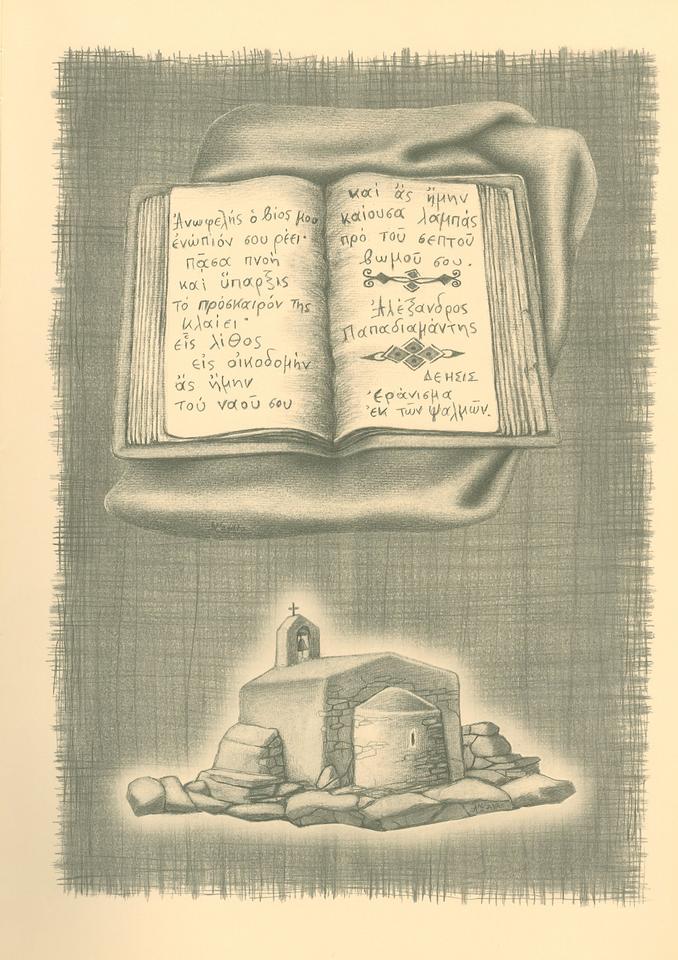 Ἀνωφελής ὁ βίος μου
ἐνώπιόν σου ρέει·
πᾶσα πνοή
καί ὕπαρξις
τό πρόσκαιρόν της
κλαίει·
εἷς λίθος
εἰς οἰκοδομήν
ἄς ἤμην
τοῦ ναοῦ σου
καί ἄς ἤμην
καίουσα λαμπάς
πρό τοῦ σεπτοῦ
βωμοῦ σου.
Ἀλέξανδρος
Παπαδιαμάντης
ΔΕΗΣΙΣ
Ἐράνισμα
ἐκ τῶν ψαλμῶν.